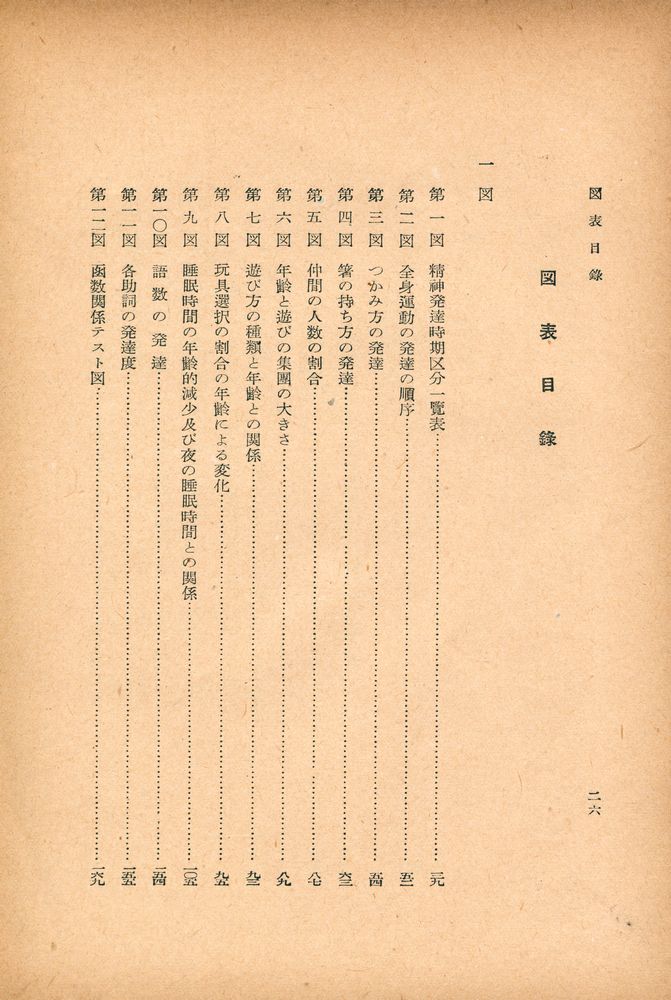 図表目錄
二六
図表目錄
一 図
第一図 精神発達時期区分一覽表
第二図 全身運動の発達の順序
第三図 つかみ方の発達……五四
第四図 箸の持ち方の発達……六三
第五図 仲間の人数の割合……八七
第六図 年齡と遊びの集團の大きさ……八九
第七図 遊び方の種類と年齡との関係……九三
第八図 玩具選択の割合の年齡による変化……九五
第九図 睡眠時間の年齡的減少及び夜の睡眠時間との関係……一〇五
第一〇図 語数の発達……一五四
第一一図 各助詞の発達度……一五五
第一二図 函数関係テスト図……一六九